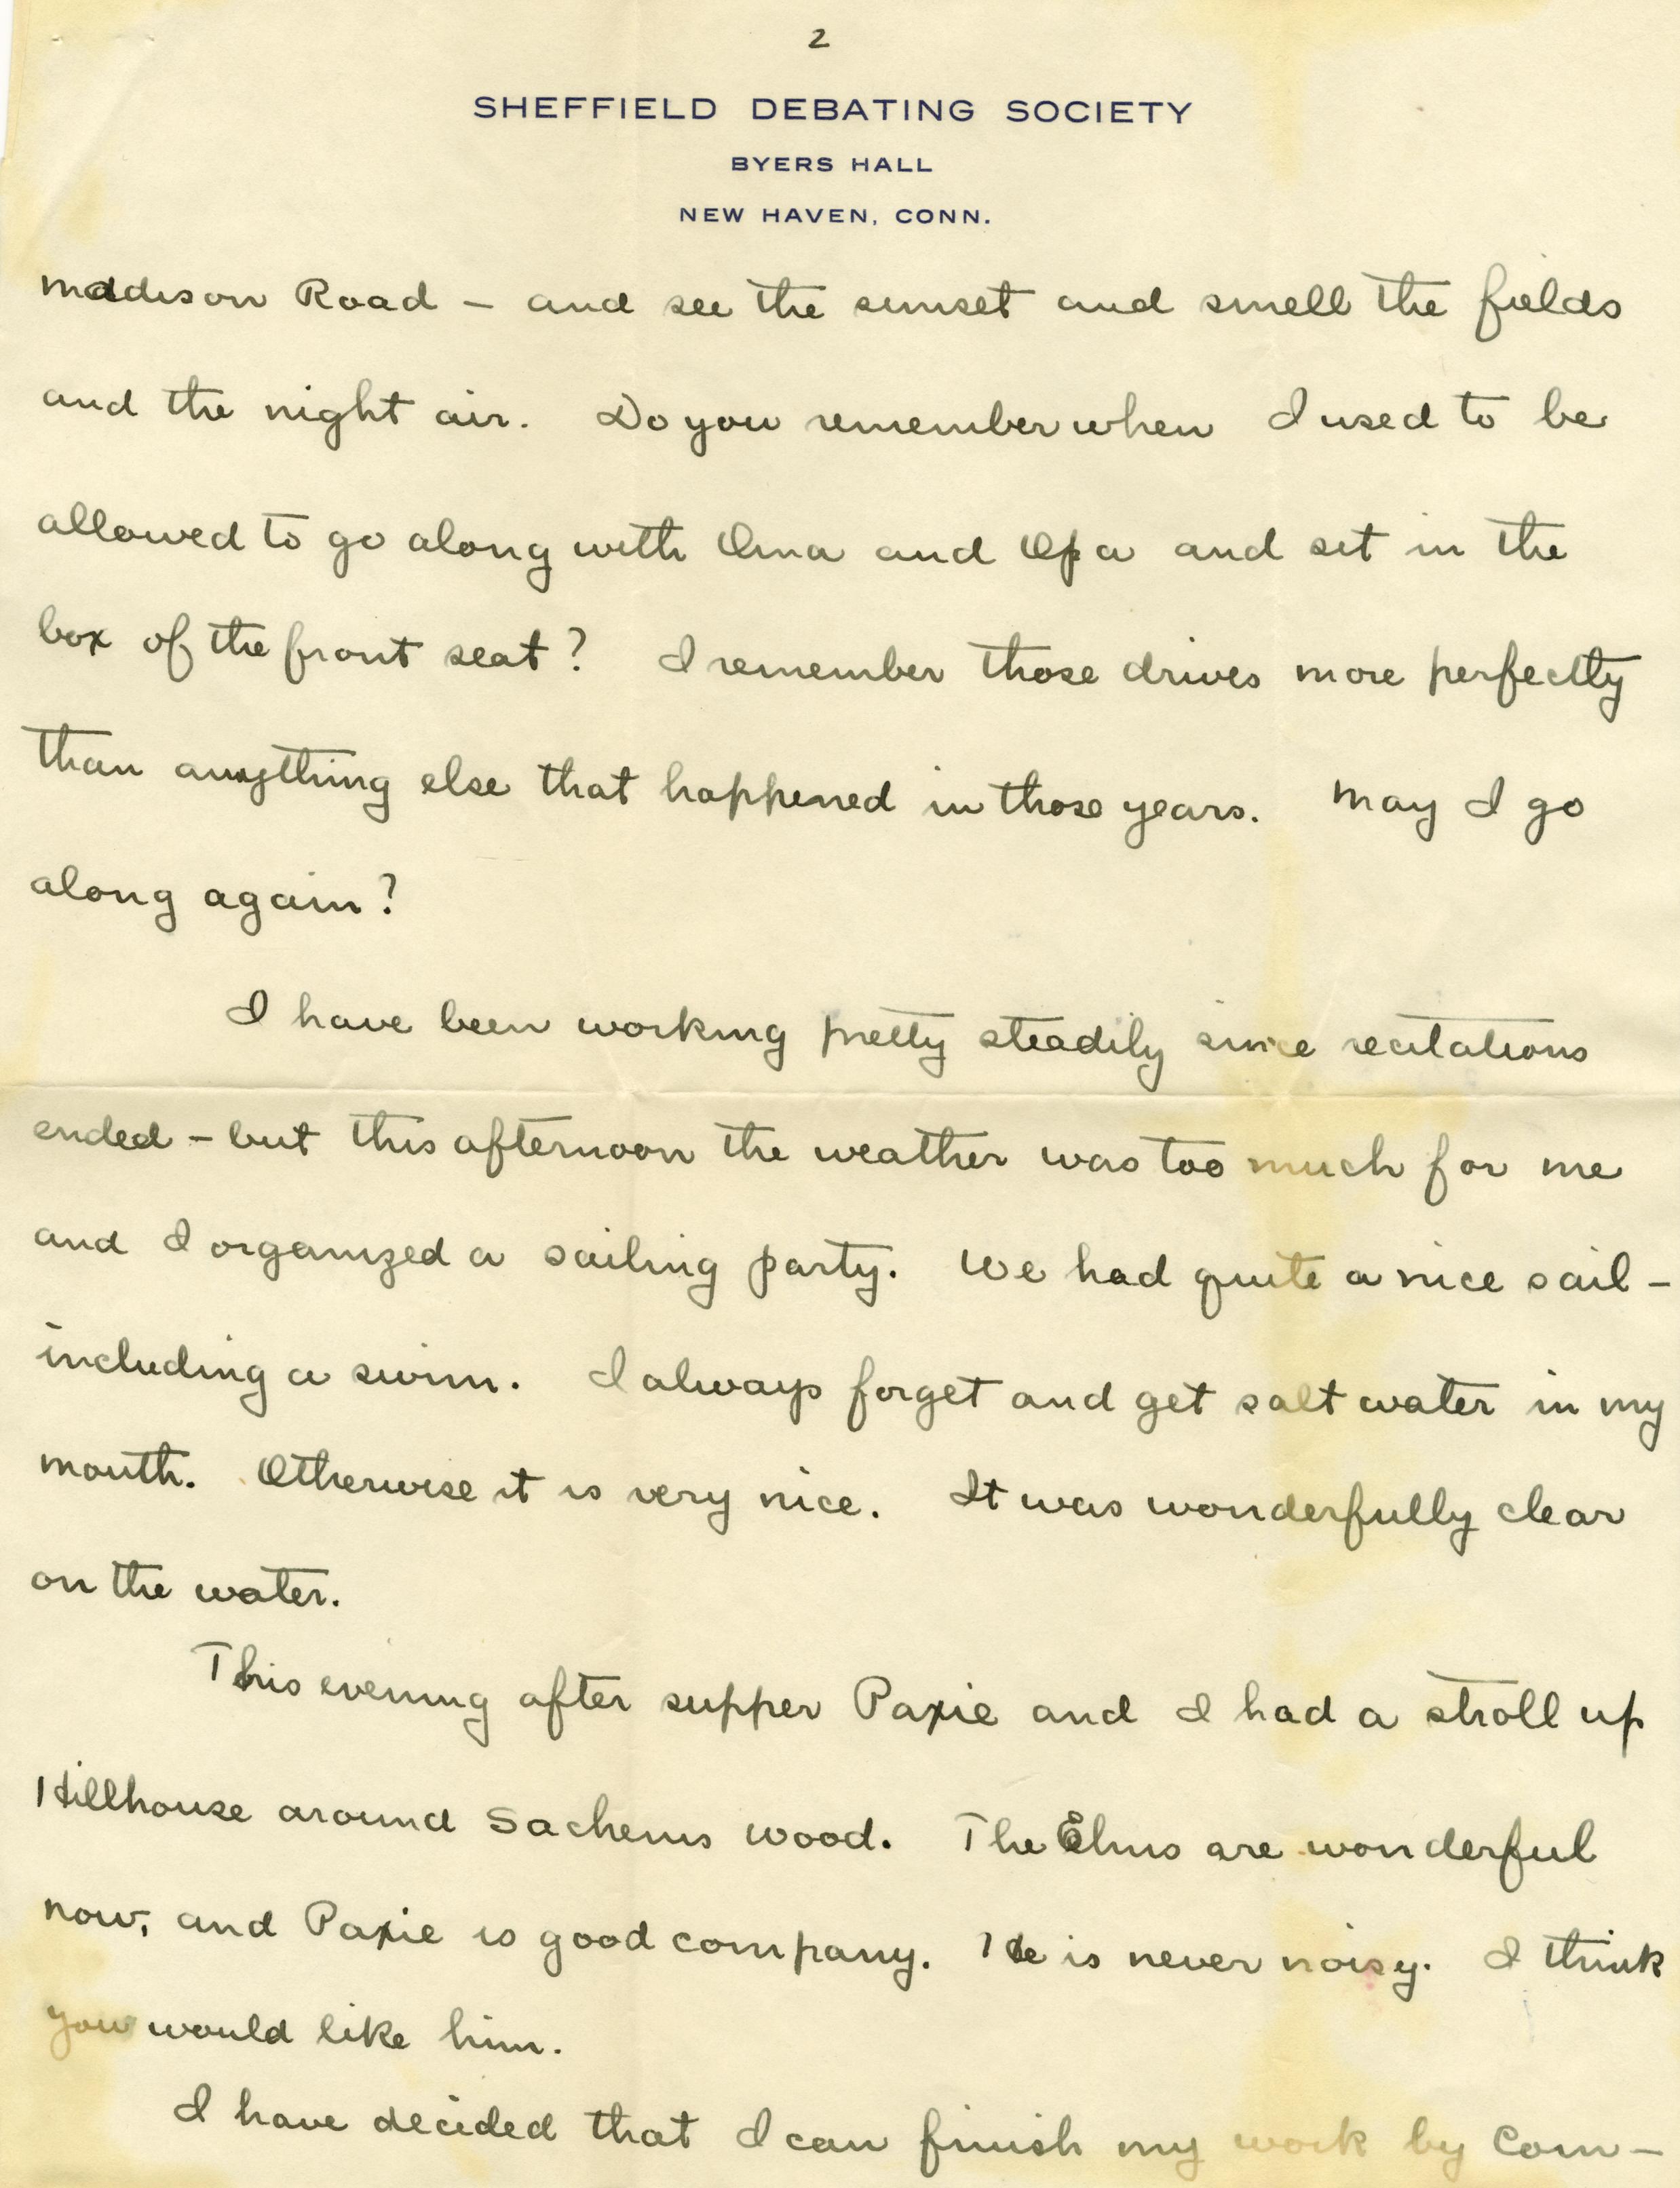 2
SHEFFIELD DEBATING SOCIETY
BYERS HALL
NEW HAVEN, CONN.
Maddison Road – and see the sunset and smell the fields
and the night air. Do you remember when I used to be
allowed to go along with Oma and Opa and sit in the
box of the front seat? I remember those drives more perfectly
than anything else that happened in those years. May I go
along again?
I have been working pretty steadily since recitations
ended – but this afternoon the weather was too much for me
and I organized a sailing party. We had quite a nice sail –
including a swim. I always forget and get salt water in my
mouth. Otherwise it is very nice. It was wonderfully clear
on the water.
This evening after supper Paxie and I had a stroll up
Hillhouse around Sachems wood. The Elms are wonderful
now, and Paxie is good company. He is never noisy. I think
you would like him.
I have decided that I can finish my work by Com–